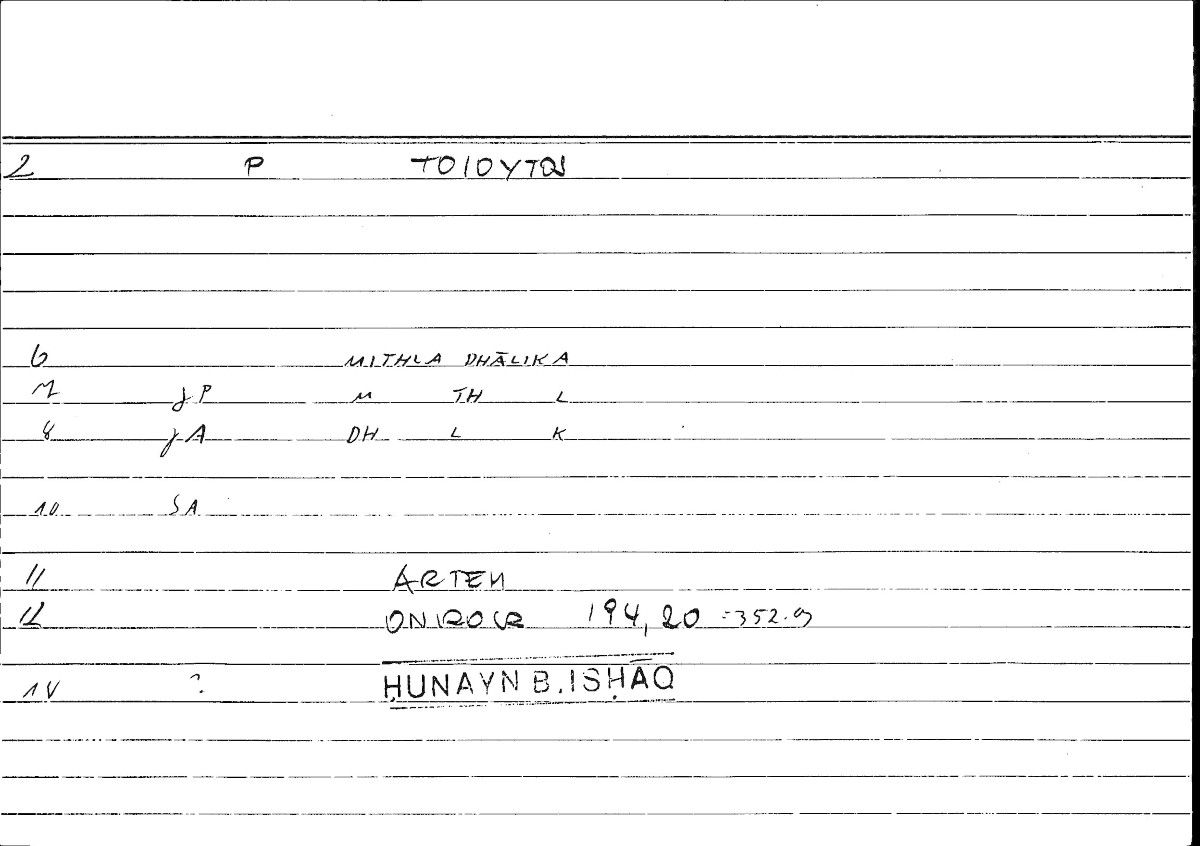 2 P ΤΟΙΟΥΤΟΙ
6 MITHLA DHĀLIKA
7 jP M TH L
8 jA DH L K
10 SA
11 ARTEM
12 ONIROCR 194,20 =352.9
14 ? ḤUNAYN B. ISḤĀQ